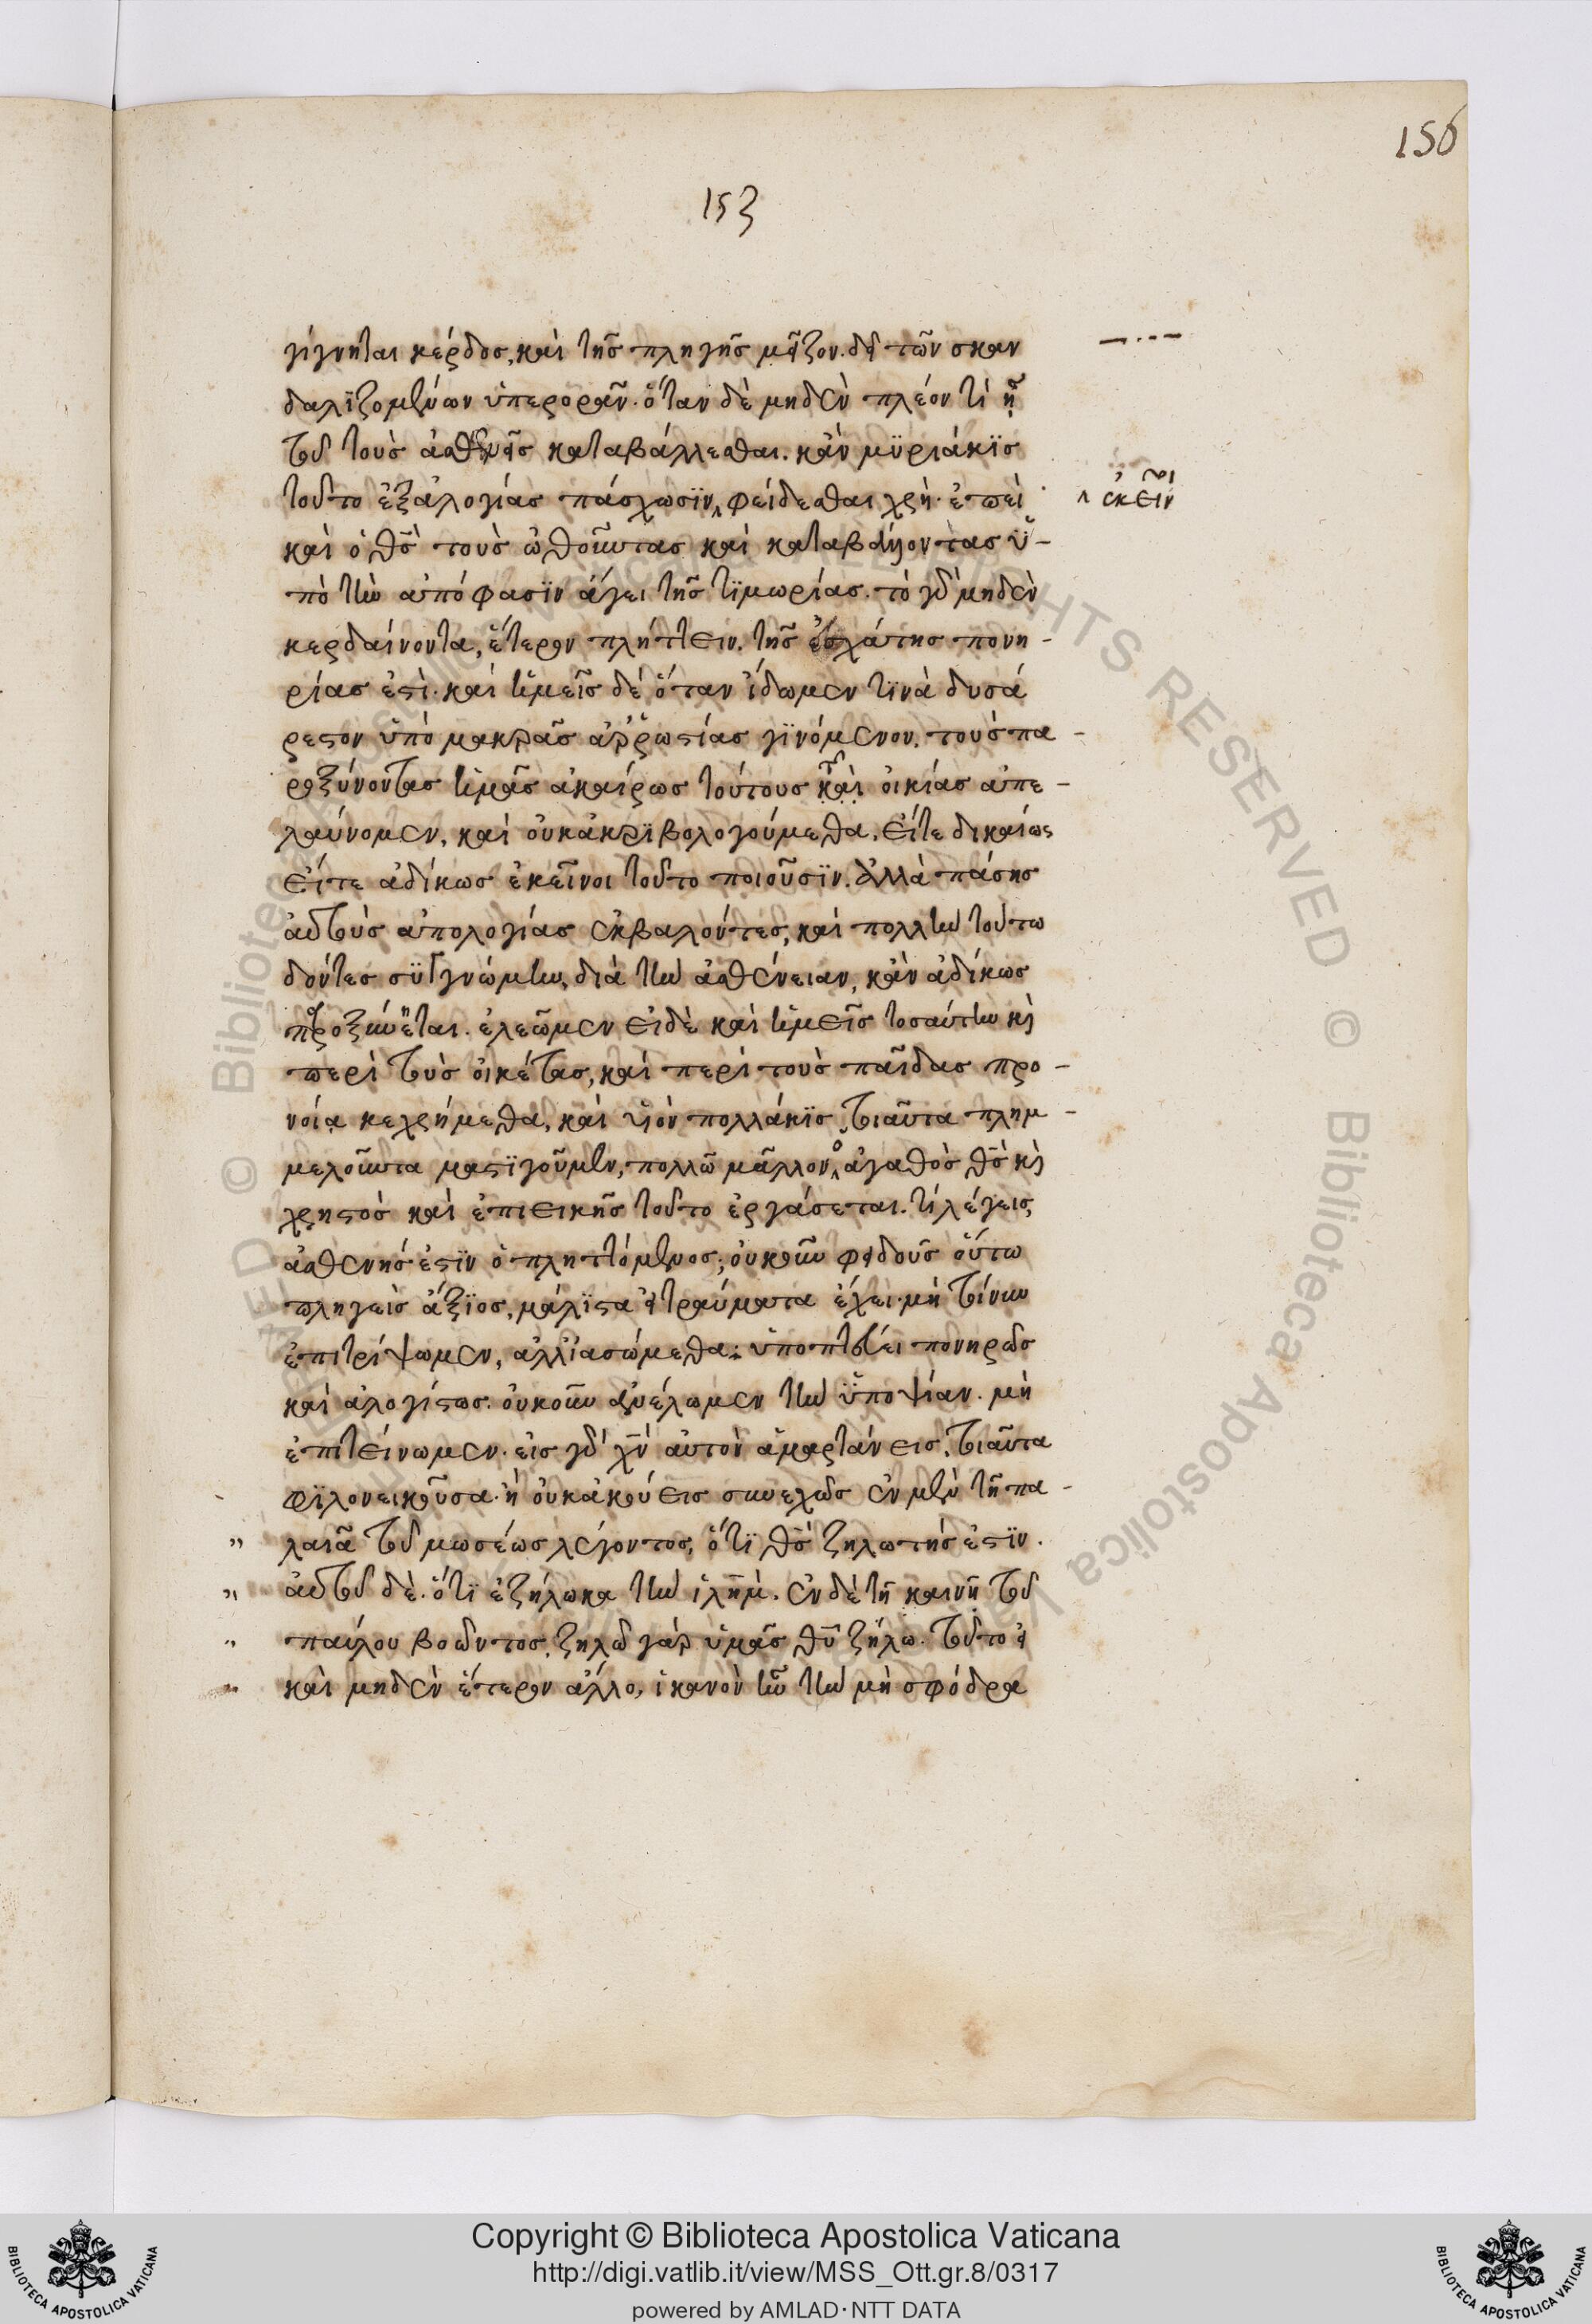 156
153
γίγνηται κέρδος, καὶ τῆς πληγῆς μεῖζον. δεῖ τῶν σκαν
δαλϊζομένων ὑπερορᾶν. ὅταν δὲ μηδὲν πλέον τί ᾖ
τοῦ τοὺς ἀσθενεῖς καταβάλλεσθαι. κἂν μϋριάκϊς
τοῦτο ἐξ ἀλογίας πάσχωσϊν, φείδεσθαι χρή. ἐπεὶ
^ ἐκεῖνοι
καὶ ὁ θς τοὺς ὠθοῦντας καὶ καταβάλλοντας ὑ-
πὸ τὴν ἀπόφασϊν ἄγει τῆς τϊμωρίας. τὸ γὰρ μηδὲν
κερδαίνοντα, ἕτερον πλήττειν, τῆς ἐσχάτης πονη-
ρίας ἐστί. καὶ ἡμεῖς δὲ ὅταν ἴδωμεν τϊνὰ δυσά
ρεστον ὑπὸ μακρᾶς ἀῤῥωστίας γϊνόμενον, τοὺς πα-
ροξύνοντας ἡμᾶς ἀκαίρως τούτους καὶ οἰκίας ἀπε-
λαύνομεν, καὶ οὐκ ἀκρϊβολογούμεθα, εἴτε δικαίως
εἴτε ἀδίκως ἐκεῖνοι τοῦτο ποιοῦσϊν. ἀλλὰ πάσης
αὐτοὺς ἀπολογίας ἐκβαλόντες, καὶ πολλὴν τούτω
δόντες συγγνώμην, διὰ τὴν ἀσθένειαν, κἂν ἀδίκως
παροξύνηται. ἐλεῶμεν εἰ δὲ καὶ ἡμεῖς τοσαύτην κὶ
περὶ τοὺς οἰκέτας, καὶ περὶ τοὺς παῖδας προ-
νοία κεχρήμεθα, καὶ υἱὸν πολλάκϊς τοιαῦτα πλημ-
μελοῦντα μαστϊγοῦμεν, πολλῶ μᾶλλον ὁ ἀγαθὸς θς κὶ
χρηστὸς καὶ ἐπιεικὴς τοῦτο ἐργάσεται. τί λέγεις,
ἀσθενής ἐστϊν ὁ πληττόμενος; οὐκοῦν φειδοῦς οὕτω
πληγεὶς ἄξϊος, μάλϊστα εἰ τραύματα ἔχει. μὴ τοίνυν
ἐπιτρίψωμεν, ἀλλ' ἰασώμεθα: ὑποπτεύει πονηρῶς
καὶ ἀλογίστως. οὐκοῦν ἀνέλωμεν τὴν ὑποψίαν. μὴ
ἐπιτείνωμεν. εἰς γὰρ χν αὐτὸν ἁμαρτάνεις, τοιαῦτα
φϊλονεικοῦσα. ἢ οὐκ ἀκούεις συνεχῶς ἐν μὲν τῆ πα-
λαιᾶ τοῦ μωσέως λέγοντος, ὅτϊ θς ζηλωτής ἐστϊν.
αὐτοῦ δὲ. ὅτϊ ἐζήλωκα τὴν ἱλῆμ. ἐν δὲ τῆ καινῆ τοῦ
παύλου βοῶντος, ζηλῶ γὰρ ὑμᾶς θυ ζήλω. τοῦτο εἰ
καὶ μηδὲν ἕτερον ἄλλο, ἱκανὸν ἦν τὴν μὴ σφόδρα
Copyright © Biblioteca Apostolica Vaticana
http://digi.vatlib.it/view/MSS_Ott.gr.8/0317
powered by AMLAD·NTT DATA